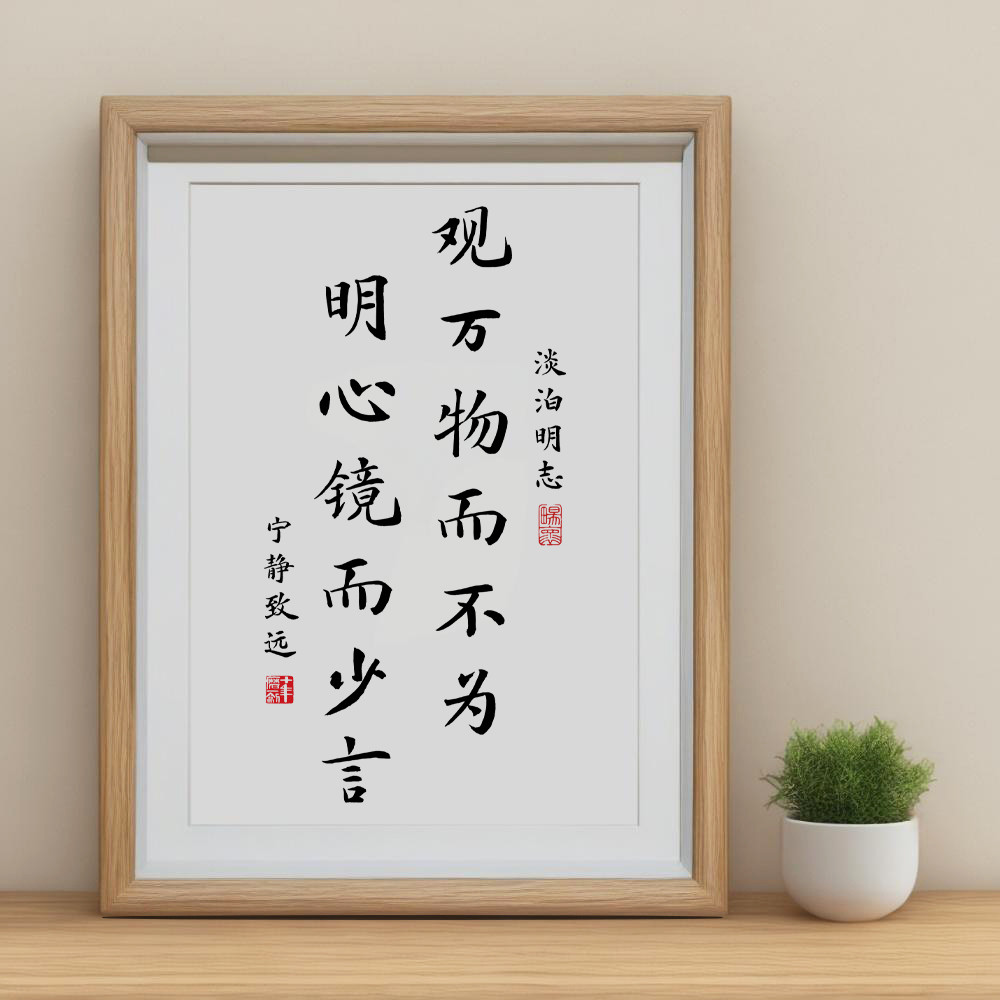 淡泊明志
观万物而不为
明心镜而少言
宁静致远